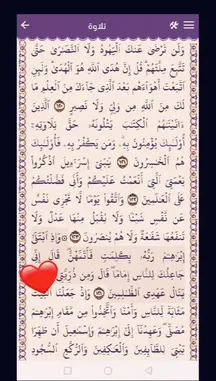 تلاوة
وَلَن تَرْضَىٰ عَنكَ ٱلْيَهُودُ وَلَا ٱلنَّصَٰرَىٰ حَتَّىٰ
تَتَّبِعَ مِلَّتَهُمْ قُلْ إِنَّ هُدَى ٱللَّهِ هُوَ ٱلْهُدَىٰ وَلَئِنِ
ٱتَّبَعْتَ أَهْوَآءَهُم بَعْدَ ٱلَّذِى جَآءَكَ مِنَ ٱلْعِلْمِ مَا
لَكَ مِنَ ٱللَّهِ مِن وَلِىٍّ وَلَا نَصِيرٍ ١٢٠ ٱلَّذِينَ
ءَاتَيْنَٰهُمُ ٱلْكِتَٰبَ يَتْلُونَهُۥ حَقَّ تِلَاوَتِهِۦٓ
أُو۟لَٰٓئِكَ يُؤْمِنُونَ بِهِۦ وَمَن يَكْفُرْ بِهِۦ فَأُو۟لَٰٓئِكَ
هُمُ ٱلْخَٰسِرُونَ ١٢١ يَٰبَنِىٓ إِسْرَٰٓءِيلَ ٱذْكُرُوا۟
نِعْمَتِىَ ٱلَّتِىٓ أَنْعَمْتُ عَلَيْكُمْ وَأَنِّى فَضَّلْتُكُمْ
عَلَى ٱلْعَٰلَمِينَ ١٢٢ وَٱتَّقُوا۟ يَوْمًا لَّا تَجْزِى نَفْسٌ
عَن نَّفْسٍ شَيْـًٔا وَلَا يُقْبَلُ مِنْهَا عَدْلٌ وَلَا
تَنفَعُهَا شَفَٰعَةٌ وَلَا هُمْ يُنصَرُونَ ١٢٣ ۞ وَإِذِ ٱبْتَلَىٰٓ
إِبْرَٰهِـۧمَ رَبُّهُۥ بِكَلِمَٰتٍ فَأَتَمَّهُنَّ قَالَ إِنِّى
جَاعِلُكَ لِلنَّاسِ إِمَامًا قَالَ وَمِن ذُرِّيَّتِى
يَنَالُ عَهْدِى ٱلظَّٰلِمِينَ ١٢٤ وَإِذْ جَعَلْنَا ٱلْبَيْتَ
مَثَابَةً لِّلنَّاسِ وَأَمْنًا وَٱتَّخِذُوا۟ مِن مَّقَامِ إِبْرَٰهِـۧمَ
مُصَلًّى وَعَهِدْنَآ إِلَىٰٓ إِبْرَٰهِـۧمَ وَإِسْمَٰعِيلَ أَن طَهِّرَا
بَيْتِىَ لِلطَّآئِفِينَ وَٱلْعَٰكِفِينَ وَٱلرُّكَّعِ ٱلسُّجُودِ